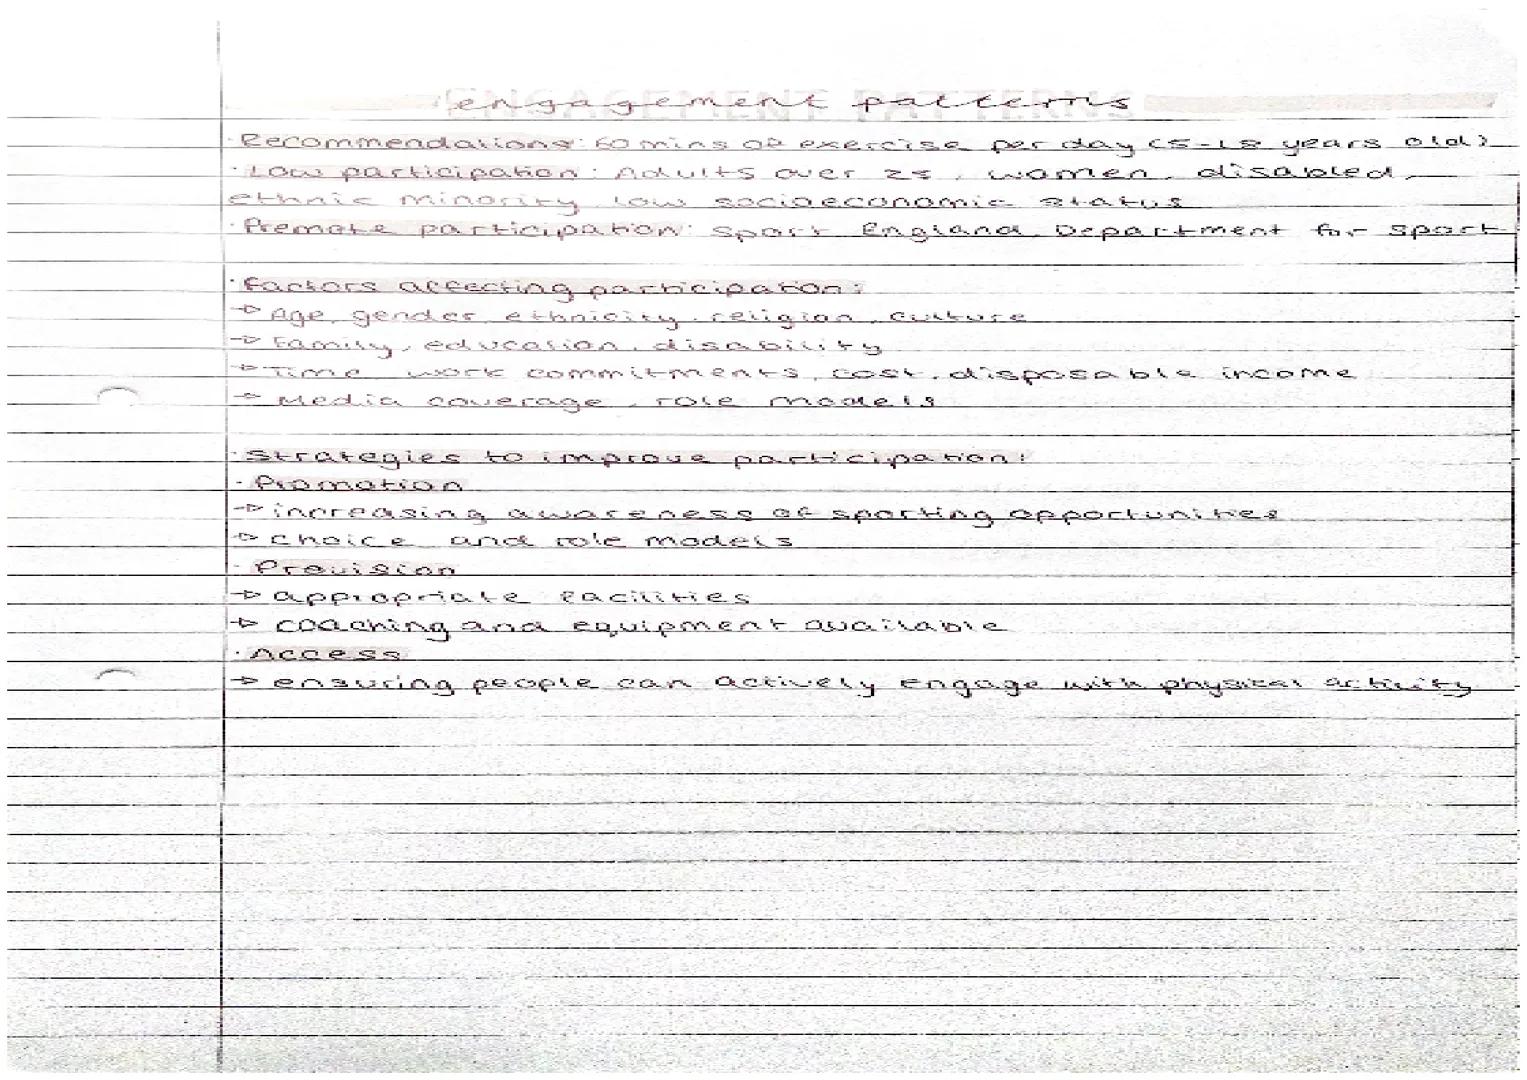 engagement patterns
· Recommendations: 60 mins of exercise per day (5-18 years old)
· Low participation: Adults over 25, women, disabled,
ethnic minority, low socioeconomic status
· Promote participation: Sport England, Department for sport
· Factors affecting participation:
→ Age, gender, ethnicity, religion, culture
→ Family, education, disability
→ Time, work commitments, cost, disposable income
→ Media coverage, role models
· Strategies to improve participation:
· Promotion
→ increasing awareness of sporting opportunities
→ choice and role models
· Provision
→ appropriate facilities
→ coaching and equipment available
· Access
→ ensuring people can actively engage with physical activity